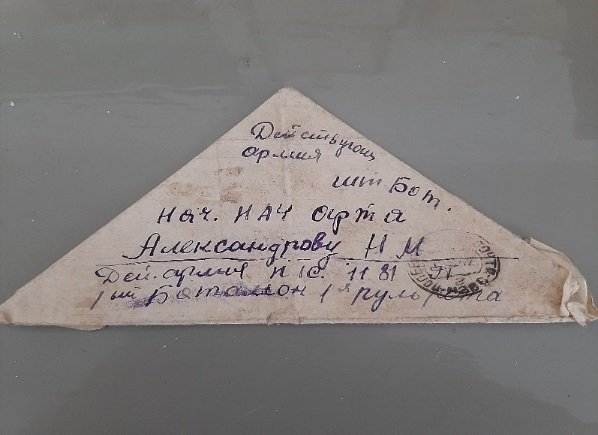 Действующ
армия
шт Бат.
Нач. НАЧ арта
Александрову Н М
Дей. армия п/с 1181
1ый Баталион 1я пульрота